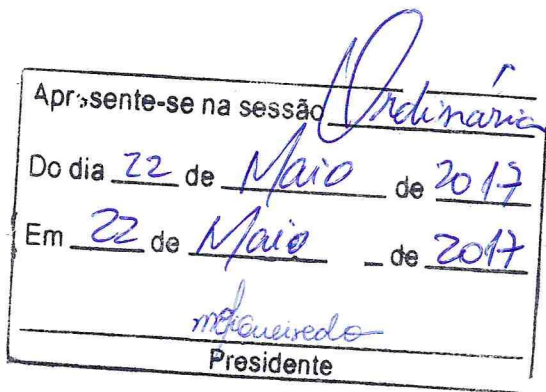 Apresente-se na sessão Ordinária
Do dia 22 de Maio de 2017
Em 22 de Maio de 2017
Presidente